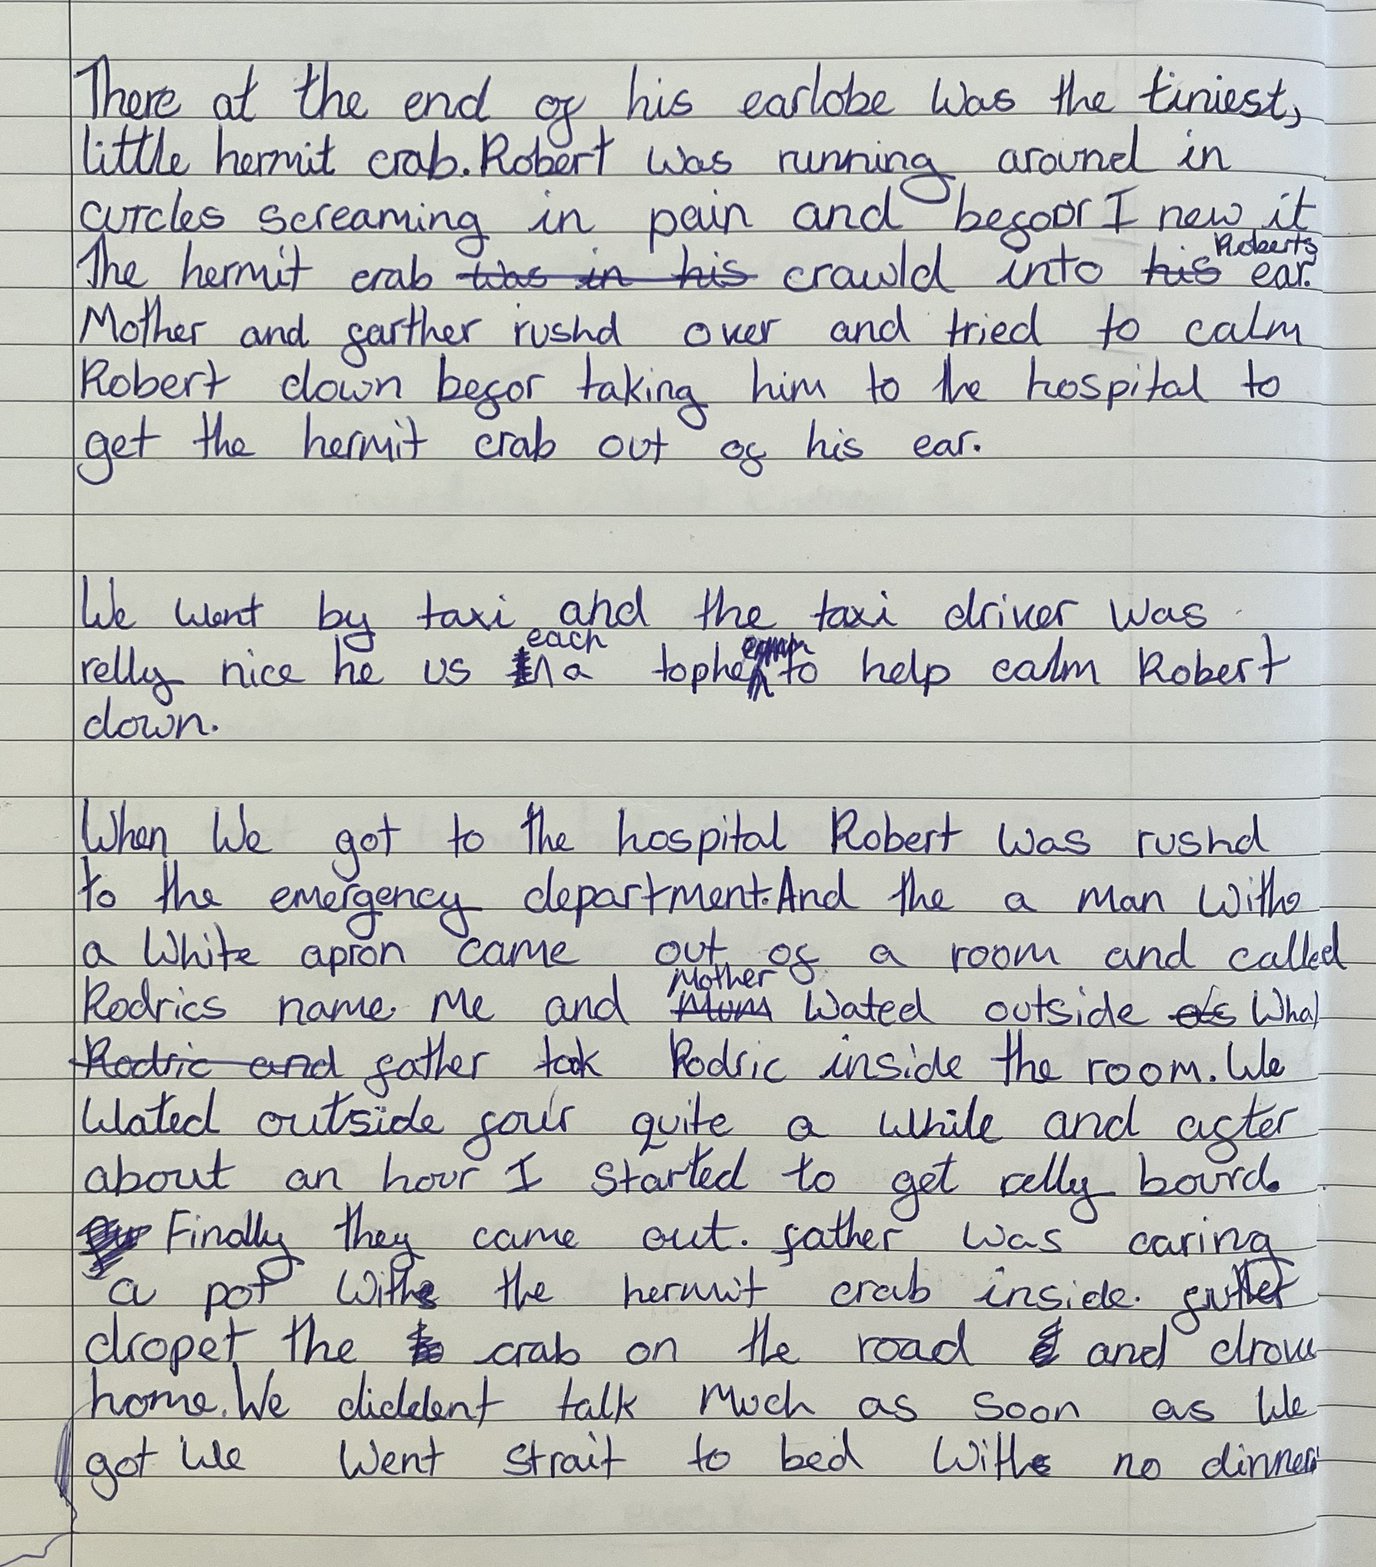 There at the end of his earlobe was the tiniest,
little hermit crab. Robert was running around in
curcles screaming in pain and befoor I new it
The hermit crab was in his crawld into his Roberts ear.
Mother and farther rushd over and tried to calm
Robert down befor taking him to the hospital to
get the hermit crab out of his ear.
We went by taxi and the taxi driver was
relly nice he us each a tophe to help calm Robert
down.
When we got to the hospital Robert was rushd
to the emergency department. And the a man withe
a white apron came out of a room and called
Rodrics name. Me and Mum Mother wated outside as whal
Rodric and father took Rodric inside the room. We
wated outside four quite a while and after
about an hour I started to get relly bourd.
Finally they came out. father was caring
a pot withe the hermit crab inside. futher
dropet the crab on the road and drove
home. We diddent talk much as soon as we
got we went strait to bed withe no dinner